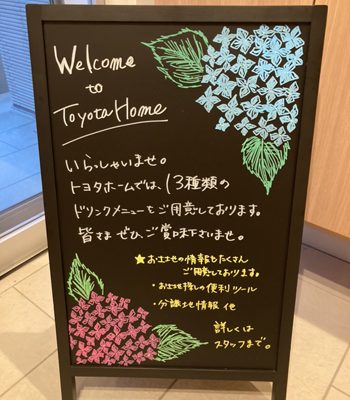 Welcome
to
Toyota Home
いらっしゃいませ。
トヨタホームでは、13種類の
ドリンクメニューをご用意しております。
皆さま ぜひ ご賞味下さいませ。
★お土地の情報もたくさん
ご用意しております。
・お土地探しの便利ツール
・分譲地情報 他
詳しくは
スタッフまで。